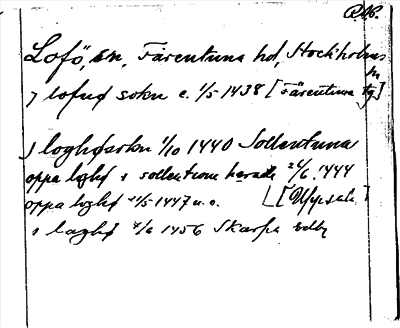 Lofö, sn, Färentuna hd, Stockholms
ln
J lofuö sokn c. 1/5 1438 [Färentuna tg]
J loghø sokn 1/10 1440 Sollentuna
oppa loghø i sollentuna herade 24/6 1444
oppa loghø 21/5 1447 u.o. [Uppsala]
i laghø 4/6 1456 Skarpa